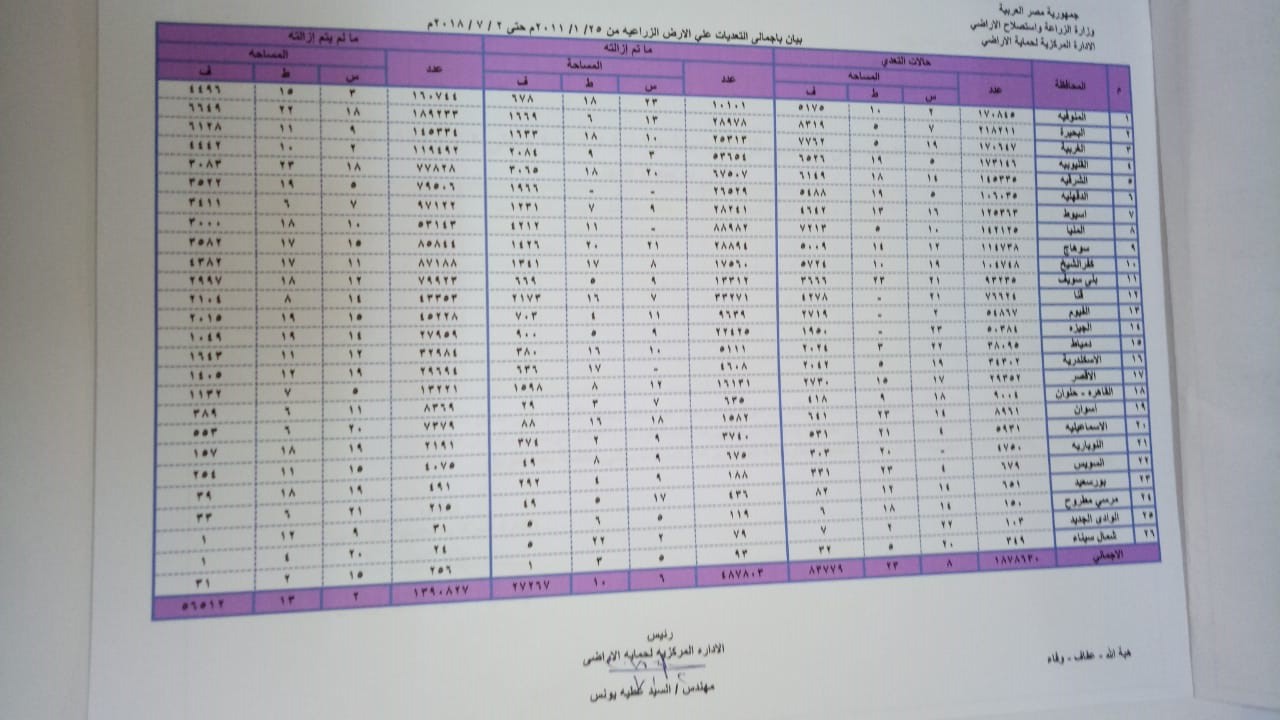 جمهورية مصر العربية
وزارة الزراعة واستصلاح الاراضي
الادارة المركزية لحماية الأراضي
بيان باجمالى التعديات علي الارض الزراعيه من ٢٥/ ١/ ٢٠١١م حتى ٢ / ٧ / ٢٠١٨م
م المحافظة حالات التعدي ما تم إزالته ما لم يتم إزالته
عدد المساحه عدد المساحة عدد المساحه
س ط ف س ط ف س ط ف
١ المنوفيه ١٧٠٨٤٥ ٢ ١٠ ٥١٧٥ ١٠١٠١ ٢٣ ١٨ ٦٧٨ ١٦٠٧٤٤ ٣ ١٥ ٤٤٩٦
٢ البحيرة ٢١٨٢١١ ٧ ٥ ٨٣١٩ ٢٨٩٧٨ ١٣ ٦ ١٦٦٩ ١٨٩٢٣٣ ١٨ ٢٢ ٦٦٤٩
٣ الغربية ١٧٠٦٤٧ ١٩ ٥ ٧٧٦٢ ٢٥٣١٣ ١٠ ١٨ ١٦٣٣ ١٤٥٣٣٤ ٩ ١١ ٦١٢٨
٤ القليوبيه ١٧٣١٤٦ ٥ ١٩ ٦٥٢٦ ٥٣٦٥٤ ٣ ٩ ٢٠٨٤ ١١٩٤٩٢ ٢ ١٠ ٤٤٤٢
٥ الشرقيه ١٤٥٣٣٥ ١٤ ١٨ ٦١٤٩ ٦٧٥٠٧ ٢٠ ١٨ ٣٠٦٥ ٧٧٨٢٨ ١٨ ٢٣ ٣٠٨٣
٦ الدقهليه ١٠٦٠٣٥ ٥ ١٩ ٥٤٨٨ ٢٦٥٢٩ - - ١٩٦٦ ٧٩٥٠٦ ٥ ١٩ ٣٥٢٢
٧ اسيوط ١٢٥٣٦٣ ١٦ ١٣ ٤٦٤٢ ٢٨٢٤١ ٩ ٧ ١٢٣١ ٩٧١٢٢ ٧ ٦ ٣٤١١
٨ المنيا ١٤٢١٢٥ ١٠ ٥ ٧٢١٣ ٨٨٩٨٢ - ١١ ٤٢١٢ ٥٣١٤٣ ١٠ ١٨ ٣٠٠٠
٩ سوهاج ١١٤٧٣٨ ١٢ ١٤ ٥٠٠٩ ٢٨٨٩٤ ٢١ ٢٠ ١٤٢٦ ٨٥٨٤٤ ١٥ ١٧ ٣٥٨٢
١٠ كفرالشيخ ١٠٤٧٤٨ ١٩ ١٠ ٥٧٢٤ ١٧٥٦٠ ٨ ١٧ ١٣٤١ ٨٧١٨٨ ١١ ١٧ ٤٣٨٢
١١ بني سويف ٩٣٢٣٥ ٢١ ٢٣ ٣٦٦٦ ١٣٣١٢ ٩ ٥ ٦٦٩ ٧٩٩٢٣ ١٢ ١٨ ٢٩٩٧
١٢ قنا ٧٦٦٢٤ ٢١ - ٤٢٧٨ ٣٣٢٧١ ٧ ١٦ ٢١٧٣ ٤٣٣٥٣ ١٤ ٨ ٢١٠٤
١٣ الفيوم ٥٤٨٦٧ ٢ - ٢٧١٩ ٩٦٣٩ ١١ ٤ ٧٠٣ ٤٥٢٢٨ ١٥ ١٩ ٢٠١٥
١٤ الجيزه ٥٠٣٨٤ ٢٣ - ١٩٥٠ ٢٢٤٢٥ ٩ ٥ ٩٠٠ ٢٧٩٥٩ ١٤ ١٩ ١٠٤٩
١٥ دمياط ٣٨٠٩٥ ٢٢ ٣ ٢٠٢٤ ٥١١١ ١٠ ١٦ ٣٨٠ ٣٢٩٨٤ ١٢ ١١ ١٦٤٣
١٦ الاسكندرية ٣٤٣٠٢ ١٩ ٥ ٢٠٤٢ ٤٦٠٨ - ١٧ ٦٣٦ ٢٩٦٩٤ ١٩ ١٢ ١٤٠٥
١٧ الأقصر ٢٩٣٥٢ ١٧ ١٥ ٢٧٣٠ ١٦١٣١ ١٢ ٨ ١٥٩٨ ١٣٢٢١ ٥ ٧ ١١٣٢
١٨ القاهره - حلوان ٩٠٠٤ ١٨ ٩ ٤١٨ ٦٣٥ ٧ ٣ ٢٩ ٨٣٦٩ ١١ ٦ ٣٨٩
١٩ اسوان ٨٩٦١ ١٤ ٢٣ ٦٤١ ١٥٨٢ ١٨ ١٦ ٨٨ ٧٣٧٩ ٢٠ ٦ ٥٥٣
٢٠ الاسماعيليه ٥٩٣١ ٤ ٢١ ٥٣١ ٣٧٤٠ ٩ ٢ ٣٧٤ ٢١٩١ ١٩ ١٨ ١٥٧
٢١ النوباريه ٤٧٥٠ - ٢٠ ٣٠٣ ٦٧٥ ٩ ٨ ٤٩ ٤٠٧٥ ١٥ ١١ ٢٥٤
٢٢ السويس ٦٧٩ ٤ ٢٣ ٣٣١ ١٨٨ ٩ ٤ ٢٩٢ ٤٩١ ١٩ ١٨ ٣٩
٢٣ بورسعيد ٦٥١ ١٤ ١٢ ٨٢ ٤٣٦ ١٧ ٥ ٤٩ ٢١٥ ٢١ ٦ ٣٣
٢٤ مرسي مطروح ١٥٠ ١٤ ١٨ ٦ ١١٩ ٥ ٦ ٥ ٣١ ٩ ١٢ ١
٢٥ الوادى الجديد ١٠٣ ٢٢ ٢ ٧ ٧٩ ٢ ٢٢ ٥ ٢٤ ٢٠ ٤ ١
٢٦ شمال سيناء ٣٤٩ ٢٠ ٥ ٣٢ ٩٣ ٥ ٣ ١ ٢٥٦ ١٥ ٢ ٣١
الاجمالي ١٨٧٨٦٣٠ ٨ ٢٣ ٨٣٧٧٩ ٤٨٧٨٠٣ ٦ ١٠ ٢٧٢٦٧ ١٣٩٠٨٢٧ ٢ ١٣ ٥٦٥١٢
هبة الله - عفاف - وفاء
رئيس
الاداره المركزيه لحمايه الاراضى
مهندس / السيد عطيه يونس